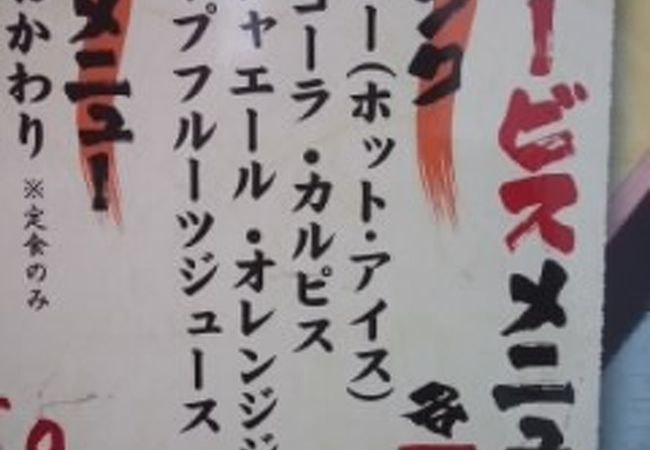 ービスメニュ
ンク
各
ー(ホット・アイス)
コーラ・カルピス
ャエール・オレンジジ
プフルーツジュース
メニュー
おかわり ※定食のみ